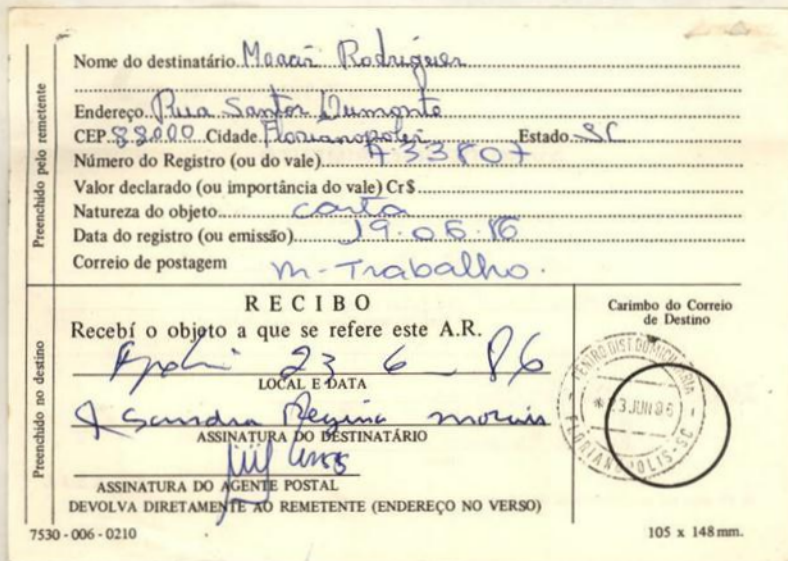 Preenchido pelo remetente
Nome do destinatário Moacir Rodrigues
Endereço Rua Santos Dumonte
CEP 88000 Cidade Florianopolis Estado SC
Número do Registro (ou do vale) A 33807
Valor declarado (ou importância do vale) Cr$
Natureza do objeto carta
Data do registro (ou emissão) 19.06.86
Correio de postagem M-Trabalho.
Preenchido no destino
RECIBO
Recebí o objeto a que se refere este A.R.
23 6 - 86
LOCAL E DATA
Sandra Regina morais
ASSINATURA DO DESTINATÁRIO
ASSINATURA DO AGENTE POSTAL
DEVOLVA DIRETAMENTE AO REMETENTE (ENDEREÇO NO VERSO)
Carimbo do Correio
de Destino
CENTRO DIST DOMICILIARIA
23 JUN 86
FLORIANOPOLIS-SC
7530 - 006 - 0210
105 x 148 mm.